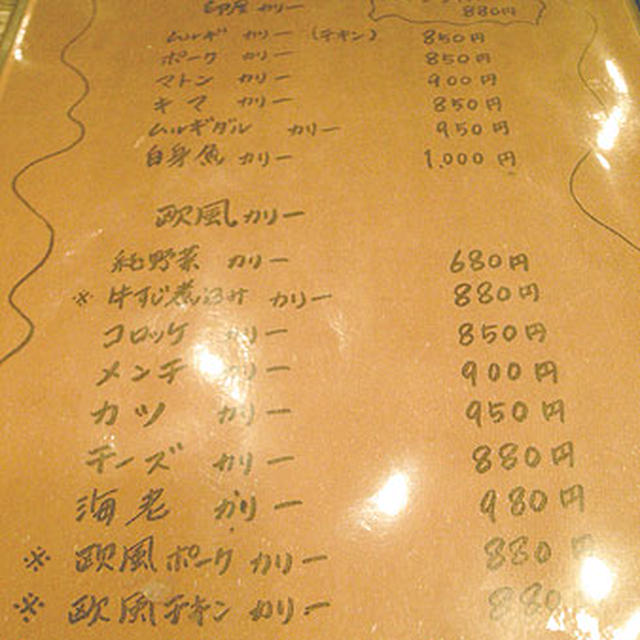 印度カリー
880円
ムルギ カリー (チキン) 850円
ポーク カリー 850円
マトン カリー 900円
キーマ カリー 850円
ムルギダル カリー 950円
白身魚 カリー 1,000円
欧風カリー
純野菜 カリー 680円
※ 牛すじ煮込み カリー 880円
コロッケ カリー 850円
メンチ カリー 900円
カツ カリー 950円
チーズ カリー 880円
海老 カリー 980円
※ 欧風ポーク カリー 880円
※ 欧風チキン カリー 880